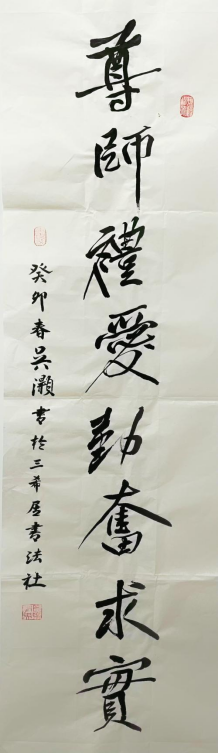 尊師禮愛勤奮求實
癸卯春吴灝書於三希居書法社